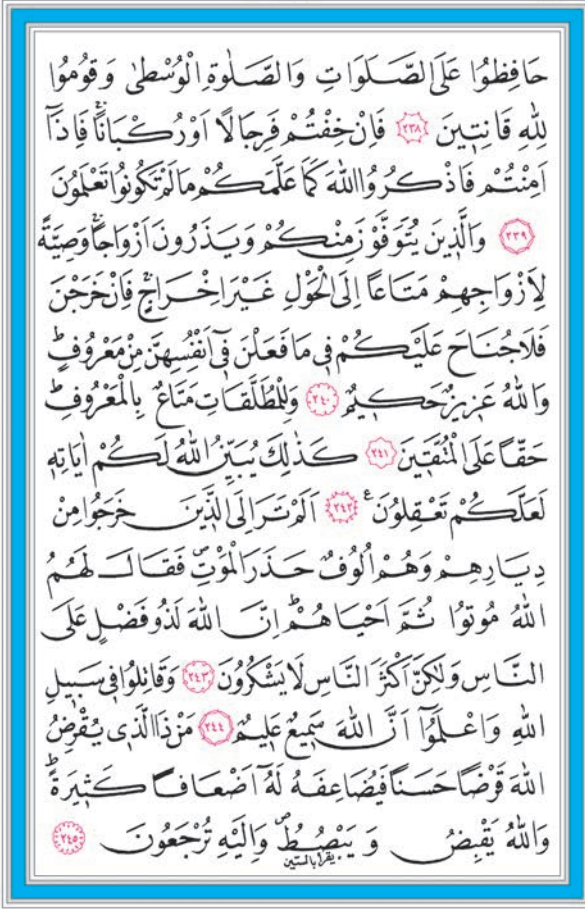 حَافِظُوا عَلَى الصَّلَوَاتِ وَالصَّلٰوةِ الْوُسْطٰى وَقُومُوا
لِلّٰهِ قَانِتٖينَ ﴿٢٣٨﴾ فَاِنْ خِفْتُمْ فَرِجَالًا اَوْ رُكْبَانًاۚ فَاِذَٓا
اَمِنْتُمْ فَاذْكُرُوا اللّٰهَ كَمَا عَلَّمَكُمْ مَا لَمْ تَكُونُوا تَعْلَمُونَ
﴿٢٣٩﴾ وَالَّذٖينَ يُتَوَفَّوْنَ مِنْكُمْ وَيَذَرُونَ اَزْوَاجًاۚ وَصِيَّةً
لِاَزْوَاجِهِمْ مَتَاعًا اِلَى الْحَوْلِ غَيْرَ اِخْرَاجٍۚ فَاِنْ خَرَجْنَ
فَلَا جُنَاحَ عَلَيْكُمْ فٖي مَا فَعَلْنَ فٖٓي اَنْفُسِهِنَّ مِنْ مَعْرُوفٍؕ
وَاللّٰهُ عَزٖيزٌ حَكٖيمٌ ﴿٢٤٠﴾ وَلِلْمُطَلَّقَاتِ مَتَاعٌ بِالْمَعْرُوفِؕ
حَقًّا عَلَى الْمُتَّقٖينَ ﴿٢٤١﴾ كَذٰلِكَ يُبَيِّنُ اللّٰهُ لَكُمْ اٰيَاتِهٖ
لَعَلَّكُمْ تَعْقِلُونَ ع ﴿٢٤٢﴾ اَلَمْ تَرَ اِلَى الَّذٖينَ خَرَجُوا مِنْ
دِيَارِهِمْ وَهُمْ اُلُوفٌ حَذَرَ الْمَوْتِࣕ فَقَالَ لَهُمُ
اللّٰهُ مُوتُوا ثُمَّ اَحْيَاهُمْؕ اِنَّ اللّٰهَ لَذُو فَضْلٍ عَلَى
النَّاسِ وَلٰكِنَّ اَكْثَرَ النَّاسِ لَا يَشْكُرُونَ ﴿٢٤٣﴾ وَقَاتِلُوا فٖي سَبٖيلِ
اللّٰهِ وَاعْلَمُٓوا اَنَّ اللّٰهَ سَمٖيعٌ عَلٖيمٌ ﴿٢٤٤﴾ مَنْ ذَا الَّذٖي يُقْرِضُ
اللّٰهَ قَرْضًا حَسَنًا فَيُضَاعِفَهُ لَهُٓ اَضْعَافًا كَثٖيرَةًؕ
وَاللّٰهُ يَقْبِضُ وَيَبْصُۣطُࣕ وَاِلَيْهِ تُرْجَعُونَ ﴿٢٤٥﴾
يقرأ بالسين